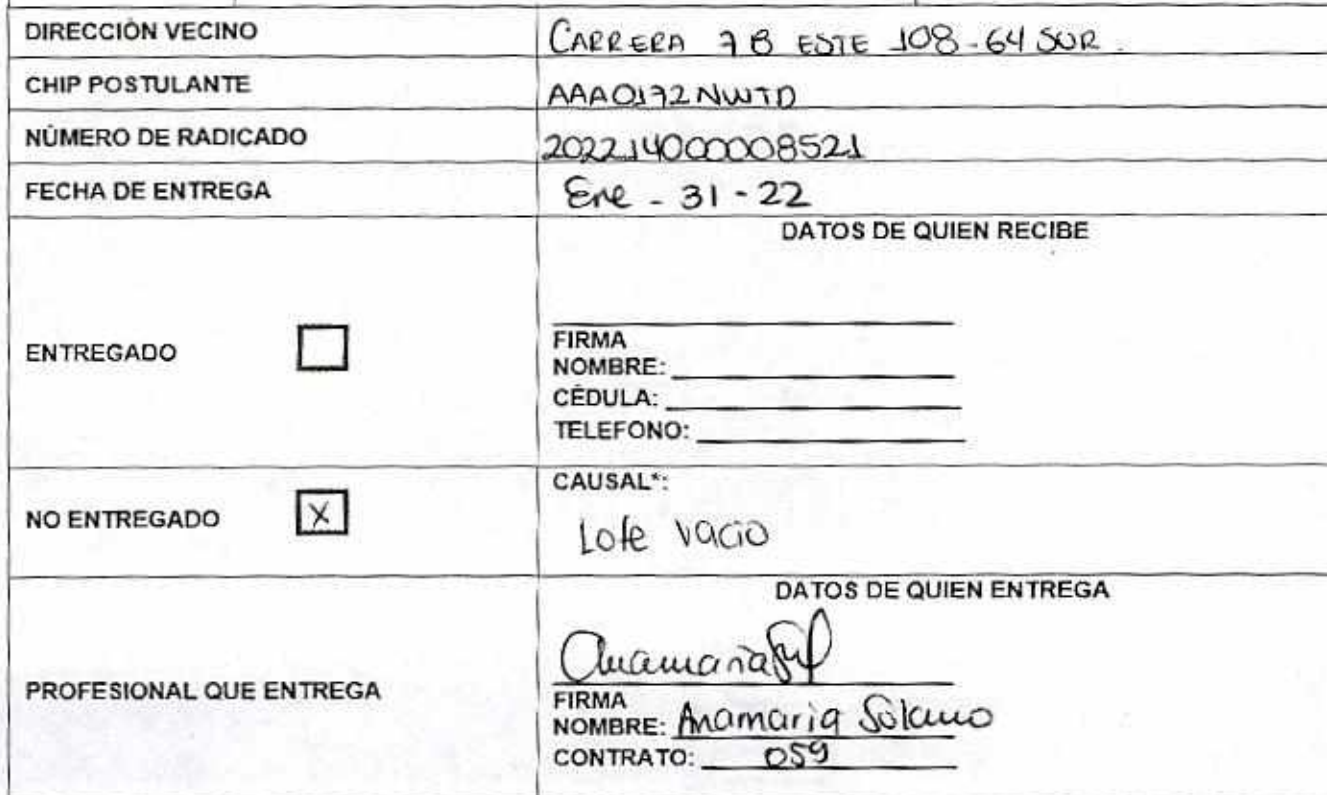 DIRECCIÓN VECINO CARRERA 7B ESTE 108-64 SUR.
CHIP POSTULANTE AAA0172NWTD
NÚMERO DE RADICADO 202214000008521
FECHA DE ENTREGA Ene - 31 - 22
DATOS DE QUIEN RECIBE
ENTREGADO
FIRMA
NOMBRE:
CÉDULA:
TELEFONO:
NO ENTREGADO X
CAUSAL*:
Lote vacio
DATOS DE QUIEN ENTREGA
PROFESIONAL QUE ENTREGA
Anamaria
FIRMA
NOMBRE: Anamaria Solano
CONTRATO: 059